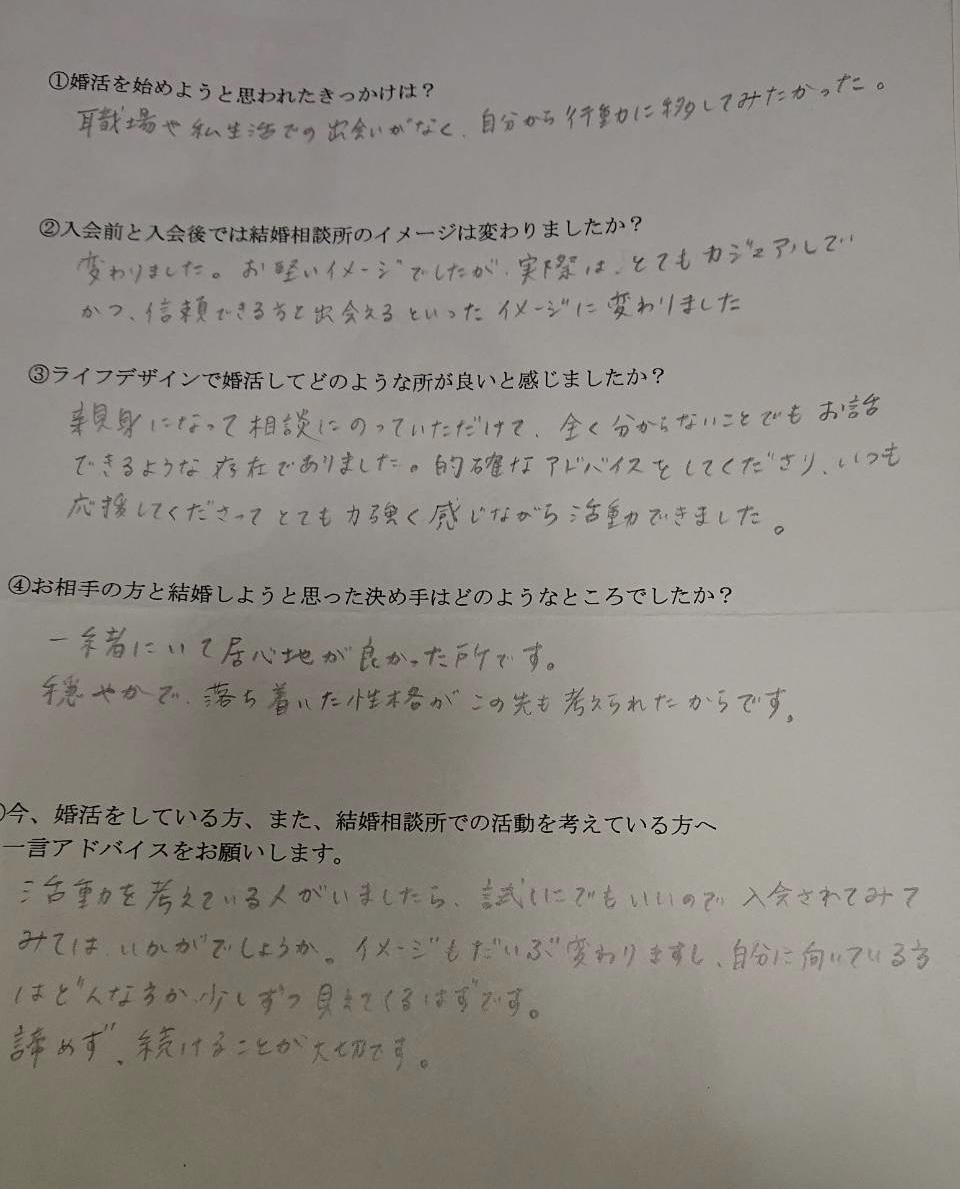 ①婚活を始めようと思われたきっかけは？
職場や私生活での出会いがなく、自分から行動に移してみたかった。
②入会前と入会後では結婚相談所のイメージは変わりましたか？
変わりました。お堅いイメージでしたが、実際は、とてもカジュアルで
かつ、信頼できる方と出会えるといったイメージに変わりました
③ライフデザインで婚活してどのような所が良いと感じましたか？
親身になって相談にのっていただけて、全く分からないことでもお話
できるような存在でありました。的確なアドバイスをしてくださり、いつも
応援してくださってとても力強く感じながら活動できました。
④お相手の方と結婚しようと思った決め手はどのようなところでしたか？
一緒にいて居心地が良かった所です。
穏やかで、落ち着いた性格がこの先も考えられたからです。
今、婚活をしている方、また、結婚相談所での活動を考えている方へ
一言アドバイスをお願いします。
活動を考えている人がいましたら、試しにでもいいので入会されてみて
みてはいかがでしょうか。イメージもだいぶ変わりますし、自分に向いている方
はどんな方か少しずつ見えてくるはずです。
諦めず、続けることが大切です。